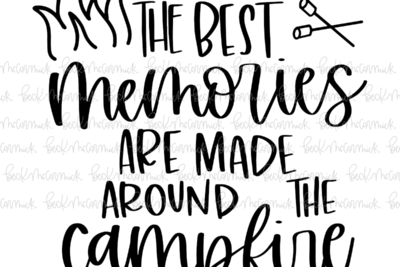 THE BEST
memories
ARE MADE
AROUND THE
campfire